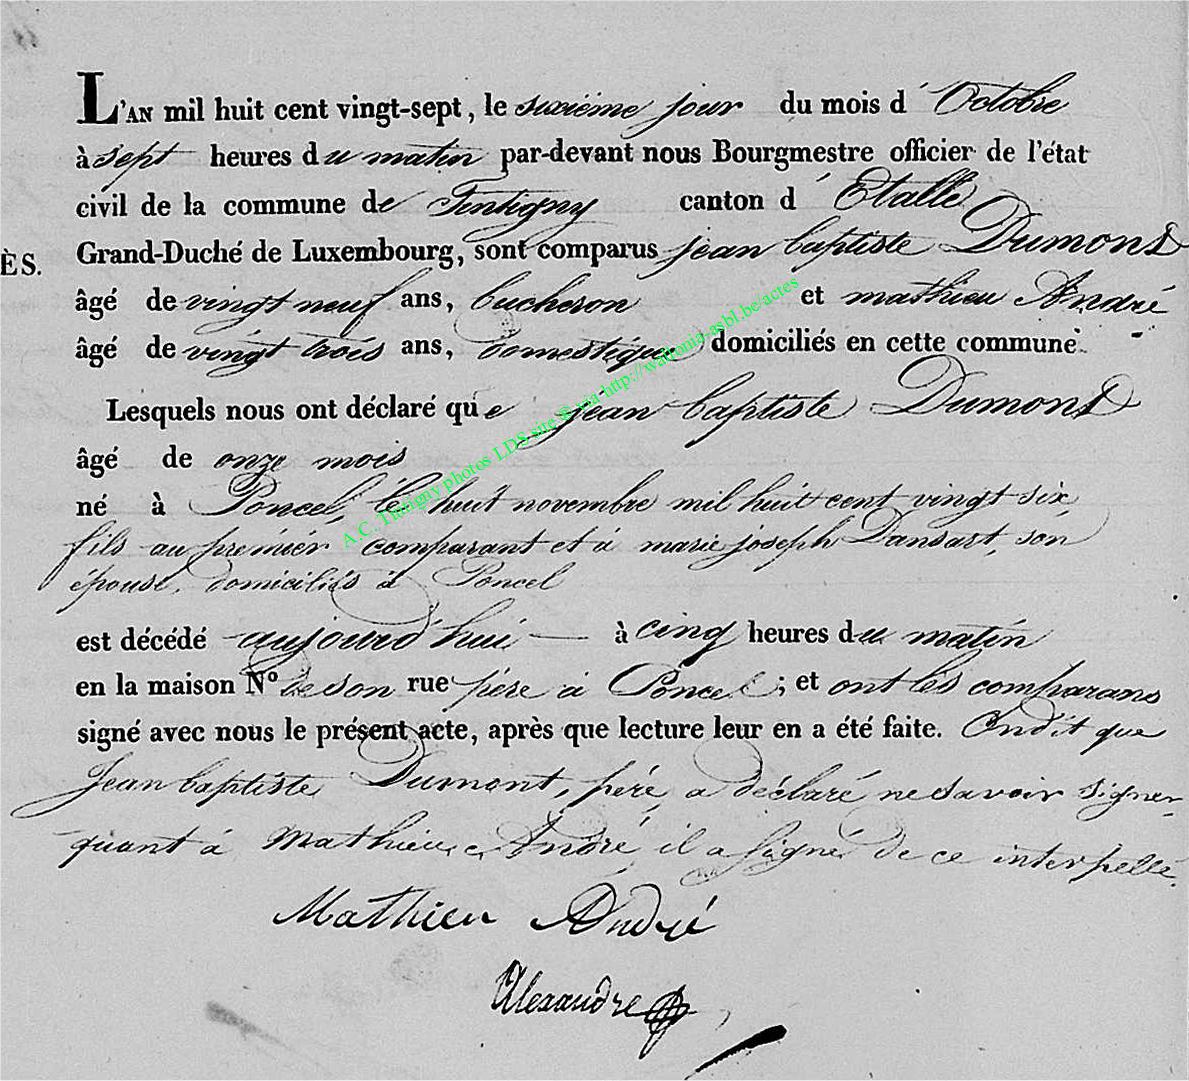 L'AN mil huit cent vingt-sept, le sixiéme jour du mois d'Octobre
à sept heures du matin par-devant nous Bourgmestre officier de l'état
civil de la commune de Tintigny canton d'Etalle
ÈS. Grand-Duché de Luxembourg, sont comparus jean baptiste Dumont
âgé de vingt neuf ans, bucheron et mathieu André
âgé de vingt trois ans, domestique domiciliés en cette commune.
Lesquels nous ont déclaré que jean baptiste Dumont
âgé de onze mois
né à Poncel, le huit novembre mil huit cent vingt six,
fils au premiér comparant et à marie joseph Dansart, son
épouse, domiciliés à Poncel
est décédé aujourd'hui à cinq heures du matin
en la maison N° de son rue père à Poncel ; et ont les comparans
signé avec nous le présent acte, après que lecture leur en a été faite. Ondit que
Jean baptiste Dumont, péré, a déclaré ne savoir signer,
quant à Mathieu André, il a signé de ce interpellé.
Mathieu André
Alexandre
A.C. Tintigny photos LDS site © via http://wallonia-asbl.be/actes